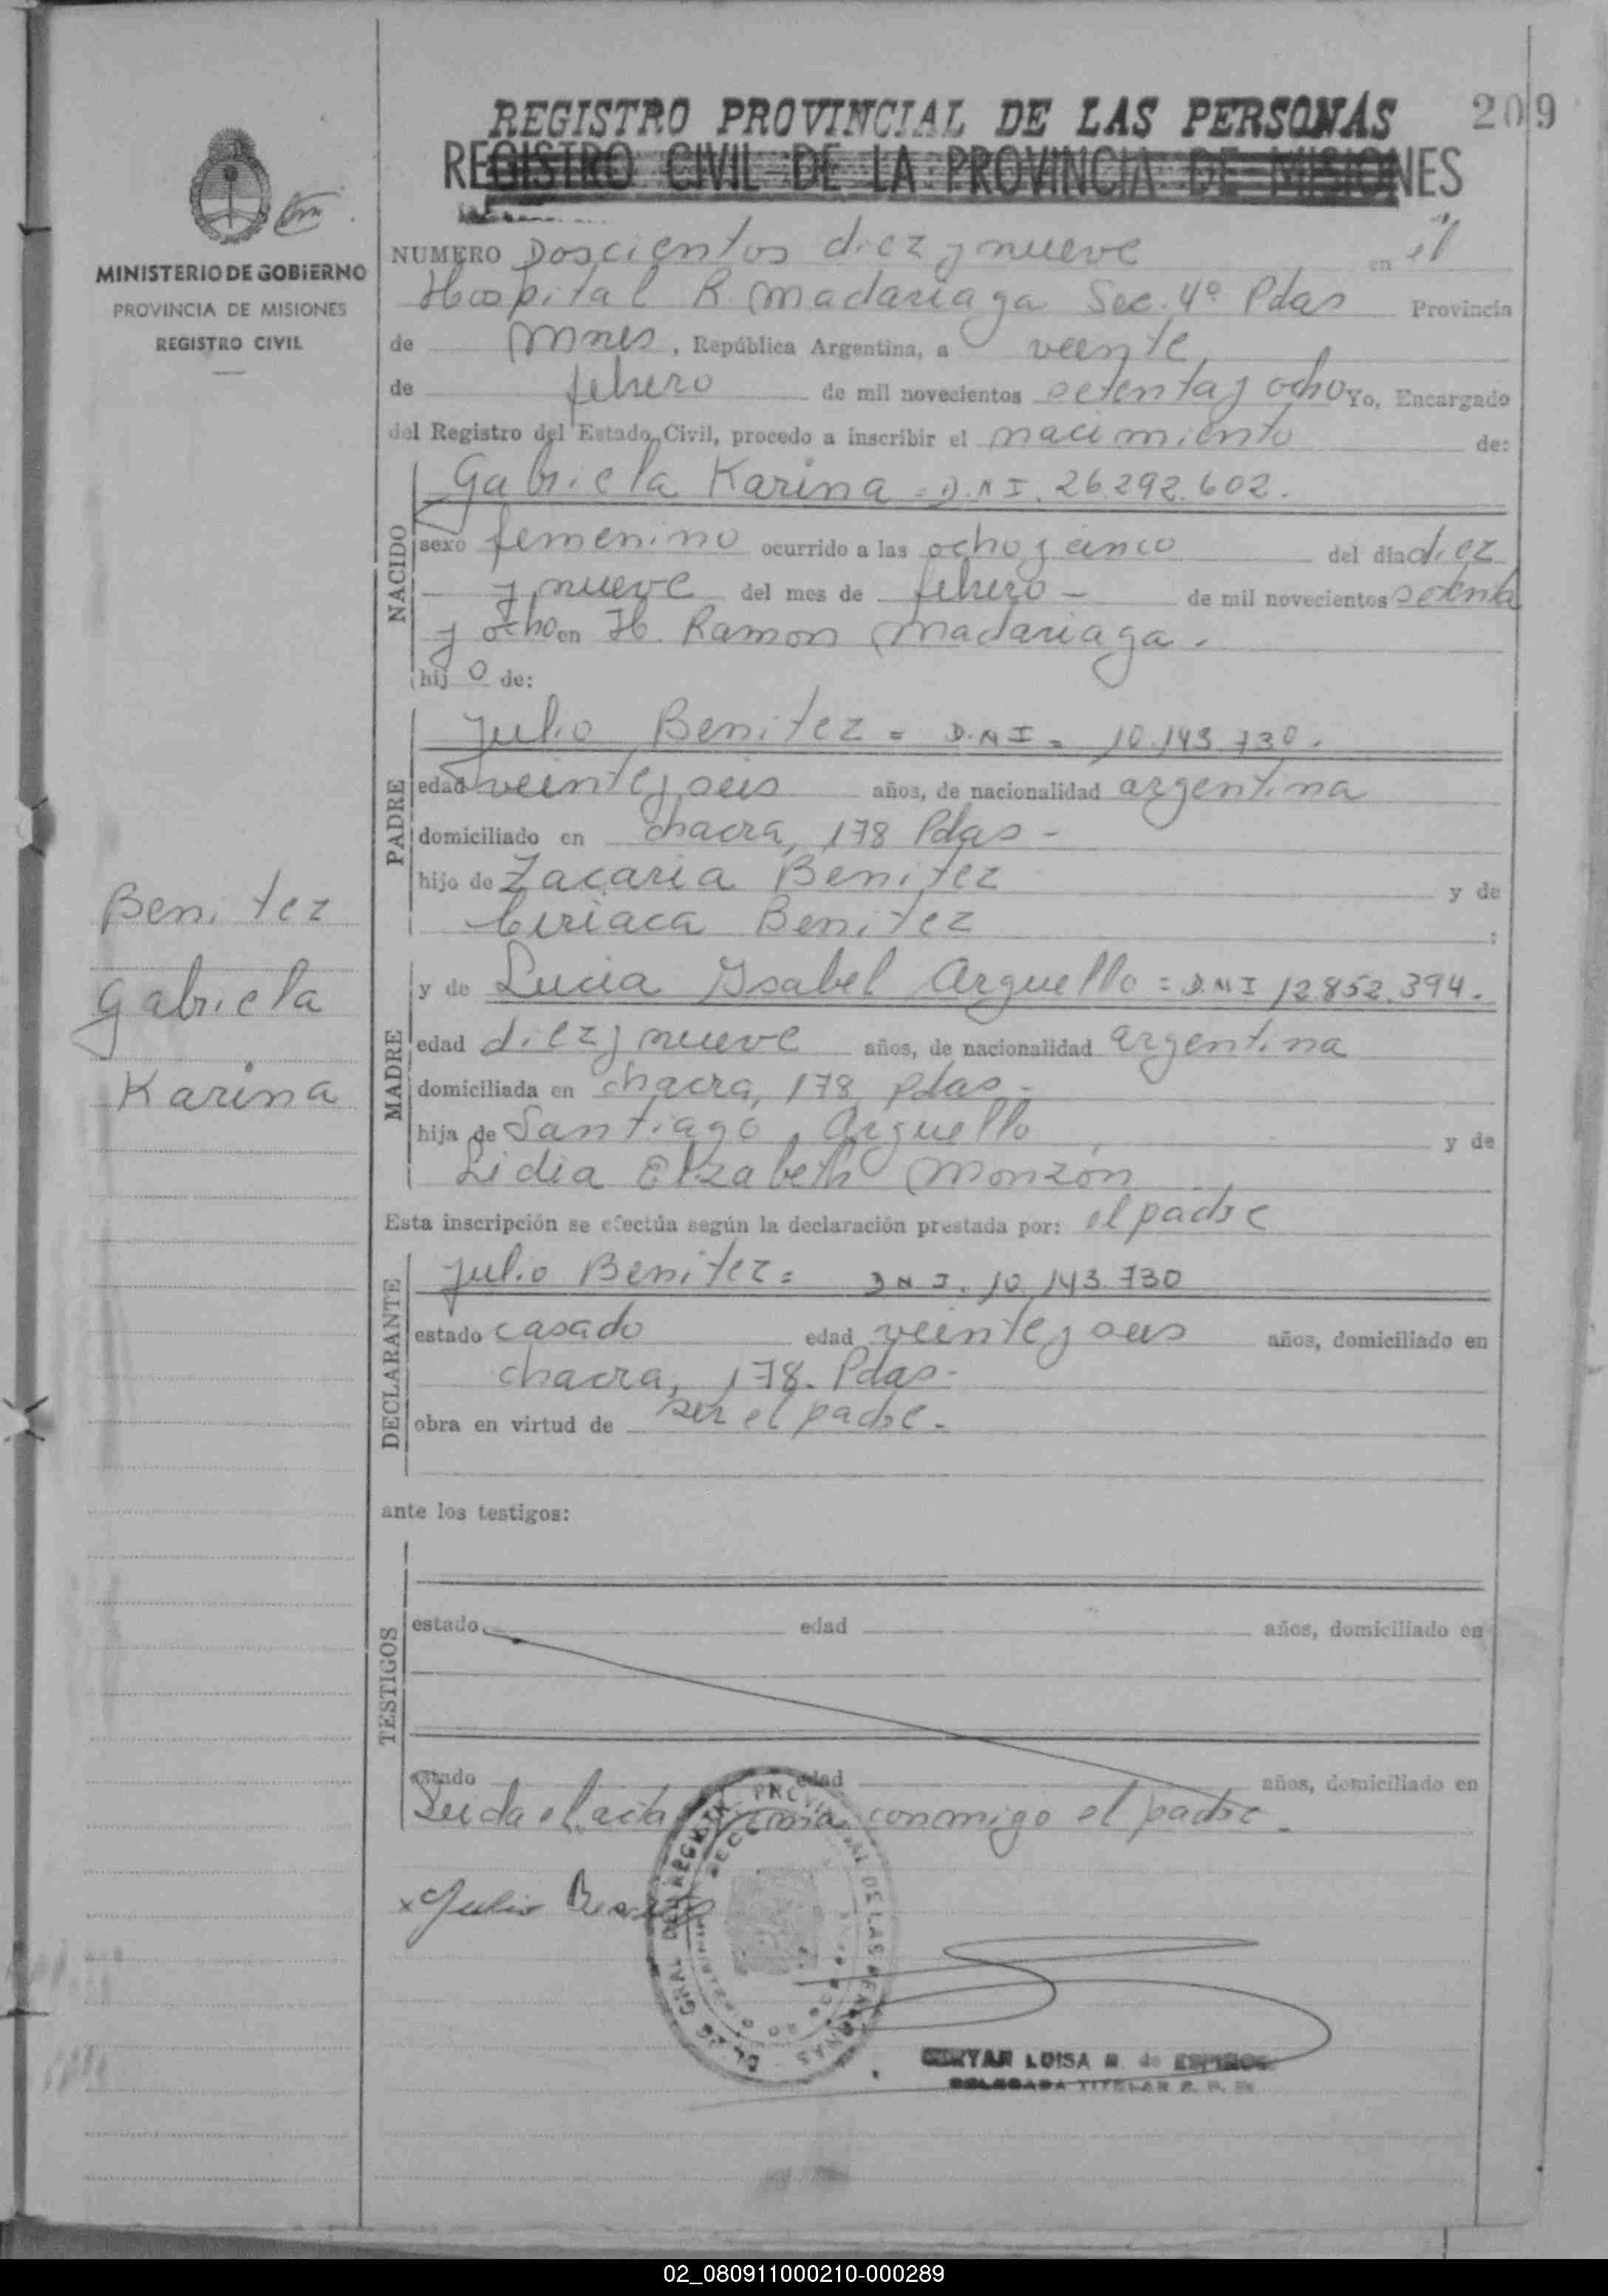 REGISTRO PROVINCIAL DE LAS PERSONAS
209
REGISTRO CIVIL DE LA PROVINCIA DE MISIONES
MINISTERIO DE GOBIERNO
PROVINCIA DE MISIONES
REGISTRO CIVIL
NUMERO Doscientos diez y nueve en el
Hospital R. Madariaga Sec. 4º Pdas Provincia
de Mnes, República Argentina, a veente
de febrero de mil novecientos setenta y ocho Yo, Encargado
del Registro del Estado Civil, procedo a inscribir el nacimiento de:
NACIDO
Gabriela Karina = D.N I. 26.292.602.
sexo femenino ocurrido a las ocho y cinco del día diez
y nueve del mes de febrero - de mil novecientos setenta
y ocho en H. Ramon Madariaga.
hij o de:
PADRE
Julio Benitez = D.N I = 10.143.730.
edad veinte y seis años, de nacionalidad argentina
domiciliado en chacra, 178 Pdas -
hijo de Zacaria Benitez y de
Ciriaca Benitez :
MADRE
y de Lucia Ysabel Arguello = D.N I 12.852.394.
edad diez y nueve años, de nacionalidad argentina
domiciliada en chacra, 178 Pdas -
hija de Santiago Arguello y de
Lidia Elzabeth Monzón
Benitez
Gabriela
Karina
Esta inscripción se efectúa según la declaración prestada por: el padre
DECLARANTE
Julio Benitez = D N I. 10.143.730
estado casado edad veinte y seis años, domiciliado en
chacra, 178. Pdas -
obra en virtud de ser el padre -
ante los testigos:
TESTIGOS
estado edad años, domiciliado en
estado edad años, domiciliado en
Leida el acta firma conmigo el padre -
x Julio Benitez
LUISA
DELEGADA TITULAR
02_080911000210-000289